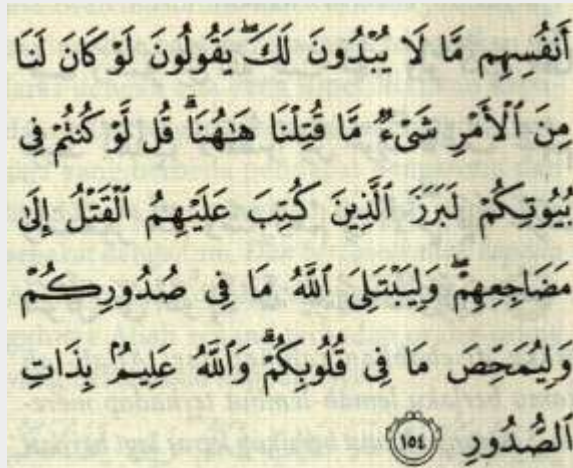 أَنفُسِهِم مَّا لَا يُبْدُونَ لَكَ ۖ يَقُولُونَ لَوْ كَانَ لَنَا
مِنَ ٱلْأَمْرِ شَىْءٌ مَّا قُتِلْنَا هَـٰهُنَا ۗ قُل لَّوْ كُنتُمْ فِى
بُيُوتِكُمْ لَبَرَزَ ٱلَّذِينَ كُتِبَ عَلَيْهِمُ ٱلْقَتْلُ إِلَىٰ
مَضَاجِعِهِمْ ۖ وَلِيَبْتَلِىَ ٱللَّهُ مَا فِى صُدُورِكُمْ
وَلِيُمَحِّصَ مَا فِى قُلُوبِكُمْ ۗ وَٱللَّهُ عَلِيمٌۢ بِذَاتِ
ٱلصُّدُورِ ١٥٤